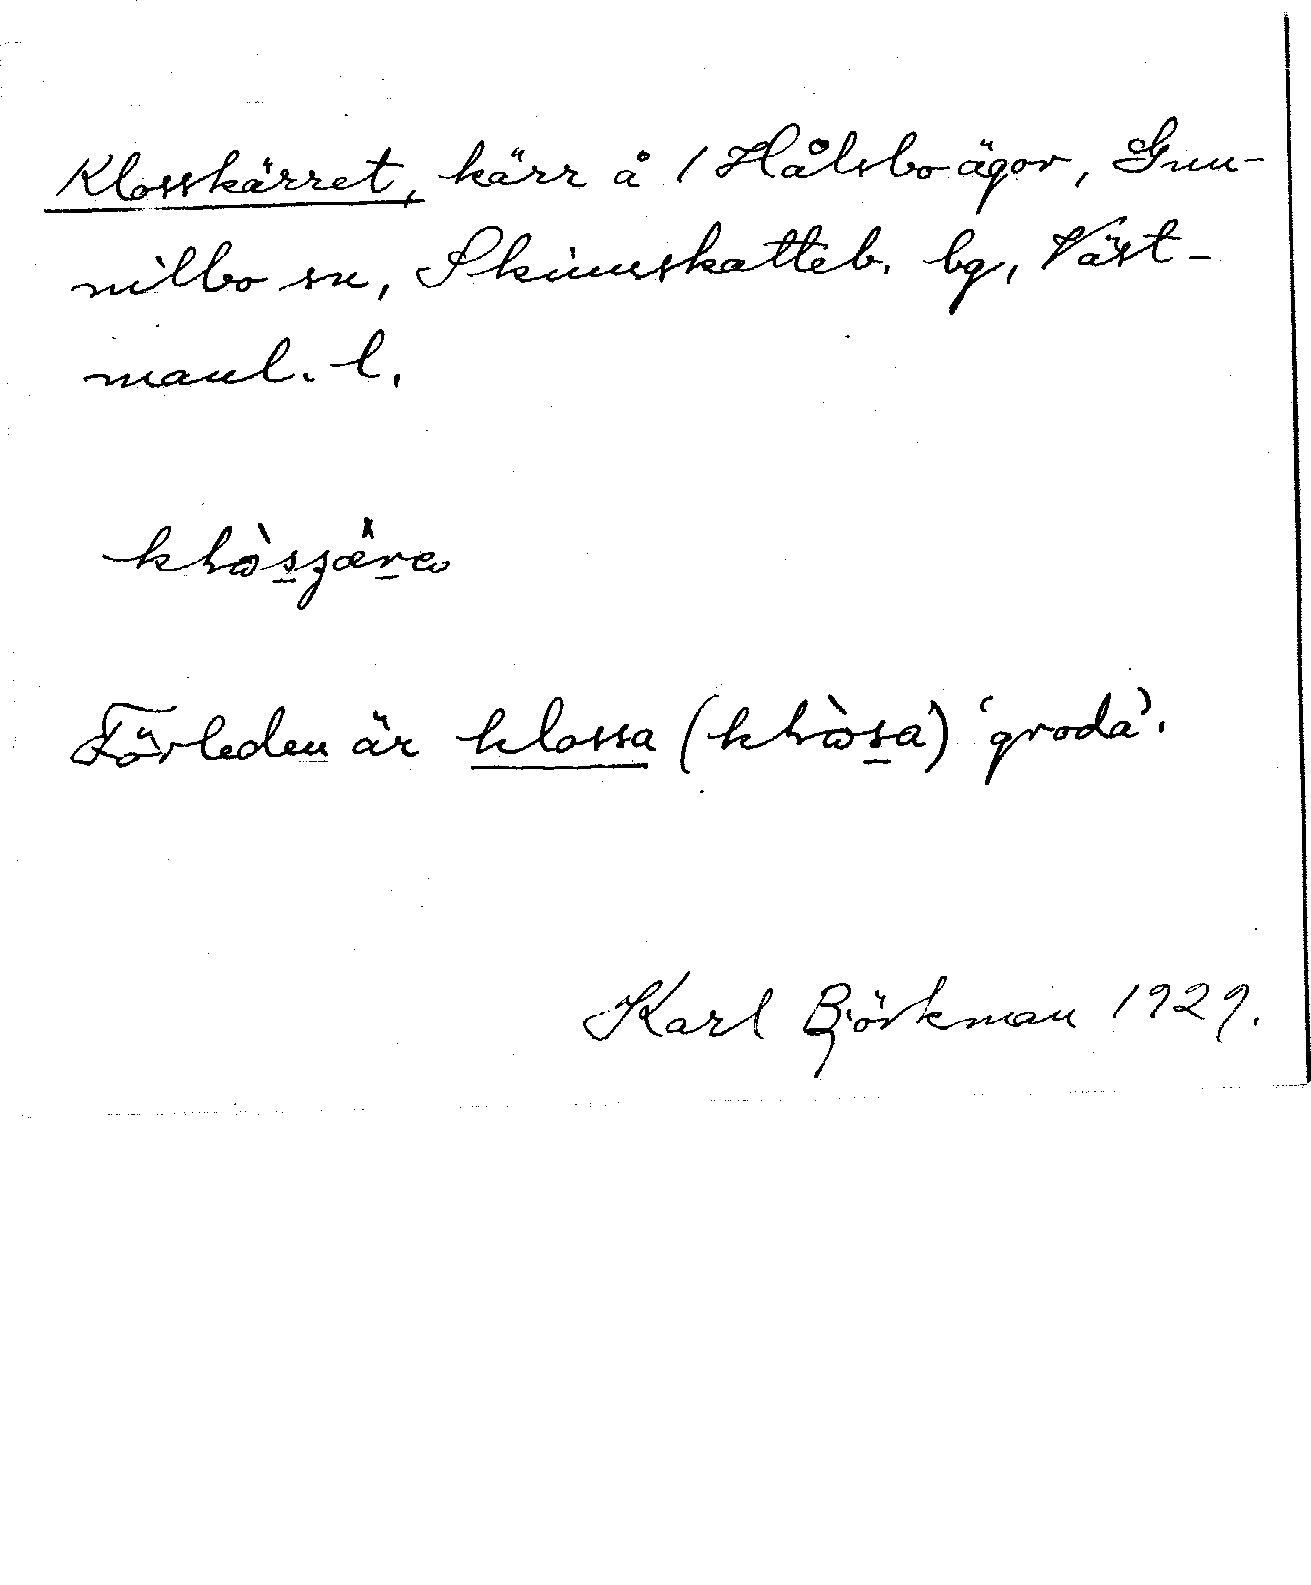 Klosskärret, kärr å / Hålsbo ägor, Gun-
nilbo sn, Skinnskatteb. bg, Väst-
manl. l.
Förleden är klossa ( ) 'groda'.
Karl Björkman 1929.